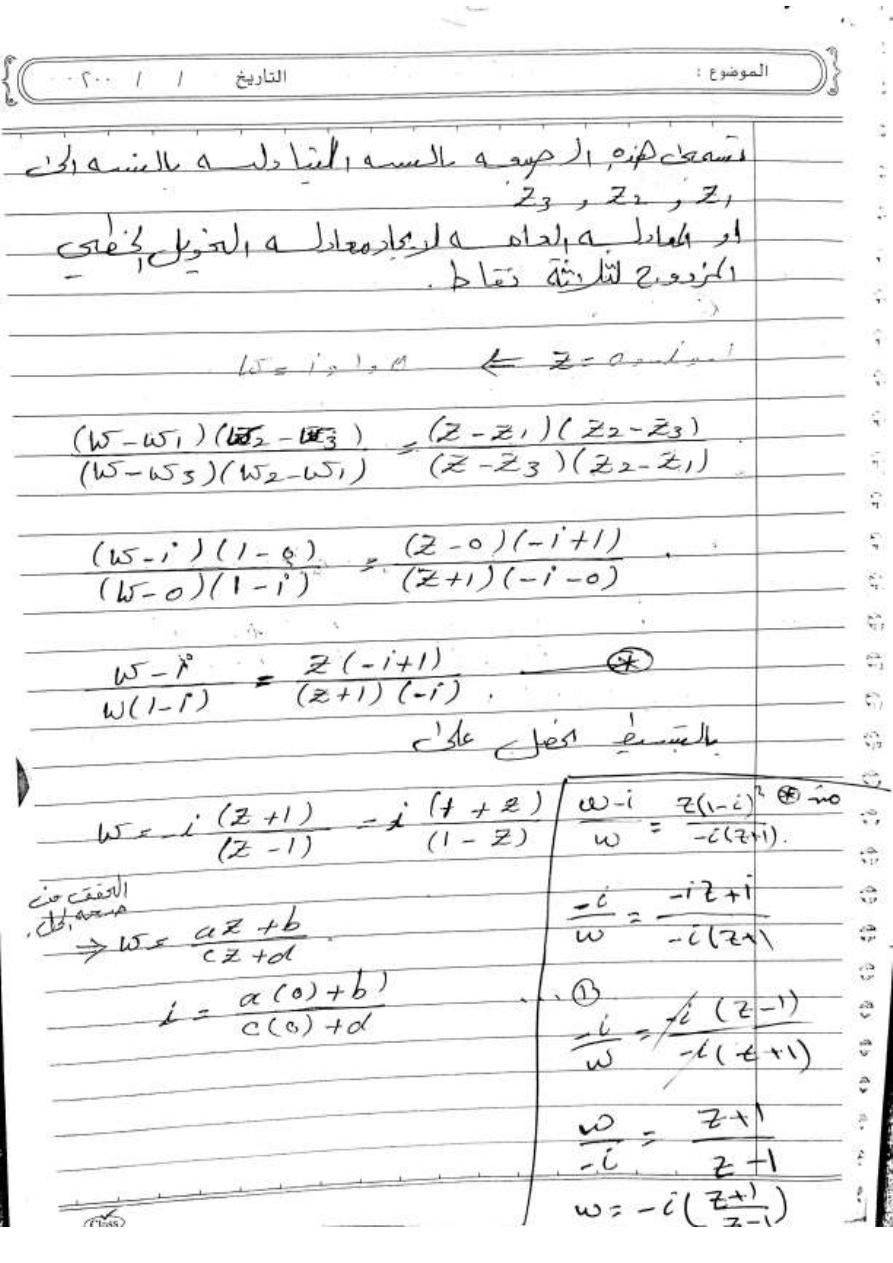 الموضوع : التاريخ / / ٢٠٠
تسمى هذه الصيغه بالنسبه المتبادله بالنسبه الى
Z₁ , Z₂ , Z₃
او المعادله العامه لايجاد معادله التحويل الخطي
المزدوج لثلاثة نقاط .
Z = 0, -i, -1 ⇐ W = i, 1, 0
(W-W₁)(W₂-W₃) / (W-W₃)(W₂-W₁) = (Z-Z₁)(Z₂-Z₃) / (Z-Z₃)(Z₂-Z₁)
(W-i)(1-0) / (W-0)(1-i) = (Z-0)(-i+1) / (Z+1)(-i-0) .
W-i / W(1-i) = Z(-i+1) / (Z+1)(-i) . ⊛
بالتبسيط نحصل على
W = -i (Z+1) / (Z-1) = i (1+Z) / (1-Z)
التحقق من
صحه الحل .
⇒ W = aZ+b / cZ+d
i = a(0)+b) / c(0)+d
من ⊛ w-i / w = Z(1-i)² / -i(Z+1) .
-i / w = -iZ+i / -i(Z+1
... ①
-i / w = -i (Z-1) / -i(Z+1)
w / -i = Z+1 / Z-1
w = -i ( Z+1 / Z-1 )
Class